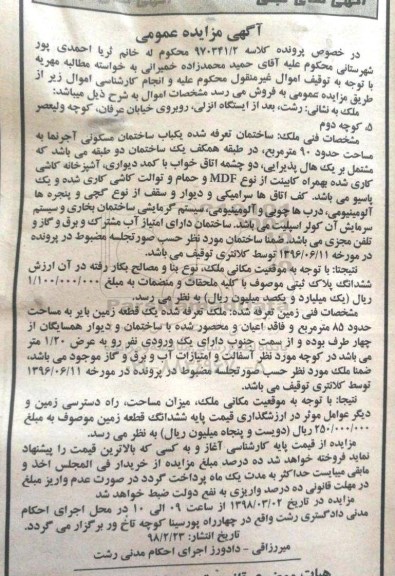 آگهی مزایده عمومی
در خصوص پرونده کلاسه ۹۷۰۳۴۱/۲ محکوم له خانم ثریا احمدی پور
شهرستانی محکوم علیه آقای حمید محمدزاده خمیرانی به خواسته مطالبه مهریه
با توجه به توقیف اموال غیرمنقول محکوم علیه و انجام کارشناسی اموال زیر از
طریق مزایده عمومی به فروش می رسد مشخصات اموال به شرح ذیل میباشد:
ملک به نشانی: رشت، بعد از ایستگاه انزلی، روبروی خیابان عرفان، کوچه ولیعصر
۵، کوچه دوم
مشخصات فنی ملک: ساختمان تعرفه شده یکباب ساختمان مسکونی آجرنما به
مساحت حدود ۹۰ مترمربع، در طبقه همکف یک ساختمان دو طبقه می باشد که
مشتمل بر یک هال پذیرایی، دو چشمه اتاق خواب با کمد دیواری، آشپزخانه کاشی
کاری شده بهمراه کابینت از نوع MDF و حمام و توالت کاشی کاری شده و یک
پاسیو می باشد. کف اتاق ها سرامیکی و دیوار و سقف از نوع گچی و پنجره ها
آلومینیومی، درب ها چوبی و آلومینیومی، سیستم گرمایشی ساختمان بخاری و سیستم
سرمایش آن کولر اسپلیت می باشد. ساختمان دارای امتیاز آب مشترک و برق و گاز و
تلفن مجزی می باشد. ضمنا ساختمان مورد نظر حسب صورتجلسه مضبوط در پرونده
در مورخه ۱۳۹۶/۰۶/۱۱ توسط کلانتری توقیف می باشد.
نتیجتا: با توجه به موقعیت مکانی ملک، نوع بنا و مصالح بکار رفته در آن ارزش
ششدانگ پلاک ثبتی موصوف با کلیه ملحقات و منضمات به مبلغ ۱/۱۰۰/۰۰۰/۰۰۰
ریال (یک میلیارد و یکصد میلیون ریال) به نظر می رسد.
مشخصات فنی زمین تعرفه شده: ملک تعرفه شده یک قطعه زمین بایر به مساحت
حدود ۸۵ مترمربع و فاقد اعیان و محصور شده با ساختمان و دیوار همسایگان از
چهار طرف بوده و از سمت جنوب دارای یک ورودی نفر رو به عرض ۱/۲۰ متر
می باشد در کوچه مورد نظر آسفالت و امتیازات آب و برق و گاز موجود می باشد،
ضمنا ملک مورد نظر حسب صورتجلسه مضبوط در پرونده در مورخه ۱۳۹۶/۰۶/۱۱
توسط کلانتری توقیف می باشد.
نتیجا: با توجه به موقعیت مکانی ملک، میزان مساحت، راه دسترسی زمین و
دیگر عوامل موثر در ارزشگذاری قیمت پایه ششدانگ قطعه زمین موصوف به مبلغ
۲۵۰/۰۰۰/۰۰۰ ریال (دویست و پنجاه میلیون ریال) به نظر می رسد.
مزایده از قیمت پایه کارشناسی آغاز و به کسی که بالاترین قیمت را پیشنهاد
نماید فروخته خواهد شد ده درصد مبلغ مزایده از خریدار فی المجلس اخذ و
مابقی میبایست حداکثر به مدت یک ماه پرداخت گردد در صورت عدم واریز مبلغ
در مهلت قانونی ده درصد واریزی به نفع دولت ضبط خواهد شد
مزایده در تاریخ ۱۳۹۸/۰۳/۰۲ از ساعت ۰۹ الی ۱۰ در محل اجرای احکام
مدنی دادگستری رشت واقع در چهارراه پورسینا کوچه تاخ ور برگزار می گردد.
تاریخ انتشار: ۹۸/۲/۲۳
میررزاقی - دادورز اجرای احکام مدنی رشت